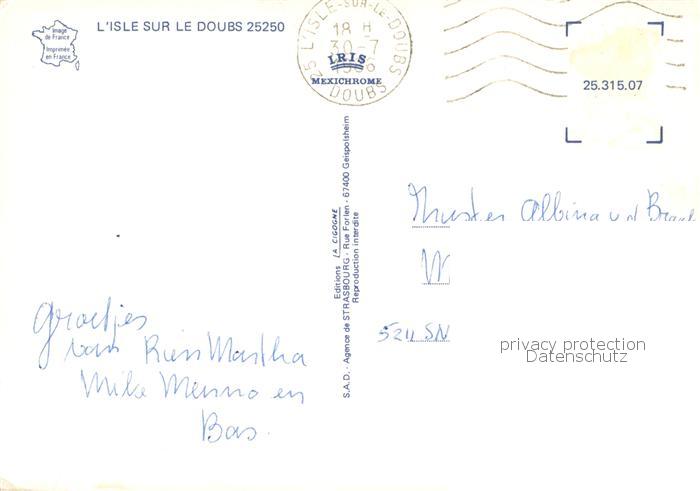 Image
de France
Imprimée
en France
L'ISLE SUR LE DOUBS 25250
25 L'ISLE-SUR-LE-DOUBS
18 H
30-7
DOUBS
IRIS
MEXICHROME
25.315.07
Editions LA CIGOGNE
S.A.D. - Agence de STRASBOURG - Rue Forlen - 67400 Geispolsheim
Reproduction interdite
Albina v d
W
5211 SN
privacy protection
Datenschutz
Groetjes
van Rien Martha
Mike Menno en
Bas.